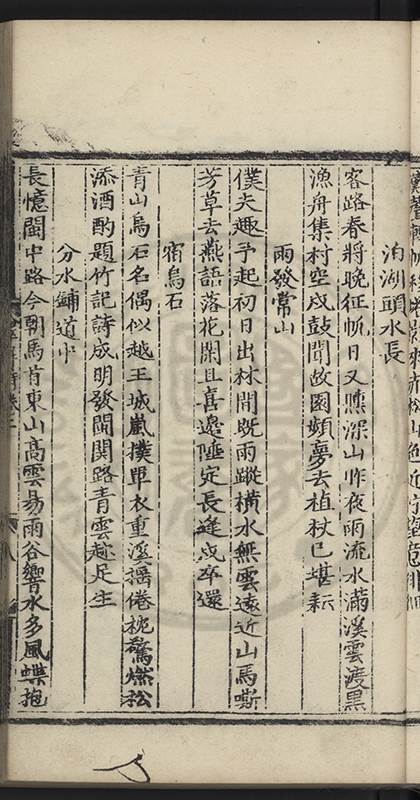 泊湖頭水長
客路春將晚征帆日又曛深山昨夜雨流水滿溪雲渡黑
漁舟集村空戍鼓聞故園頻夢去植杖已堪耘
雨發常山
僕夫趣予起初日出林間既雨蹤橫水無雲遠近山馬嘶
芳草去燕語落花閑且喜邊陲定長逢戍卒還
宿烏石
青山烏石名偶似越王城嵐撲單衣重溪謡倦枕驚燃松
添酒酌題竹記詩成明發閩關路青雲趂足生
分水鋪道中
長憶閩中路今朝馬首東山高雲易雨谷響水多風蝶抱